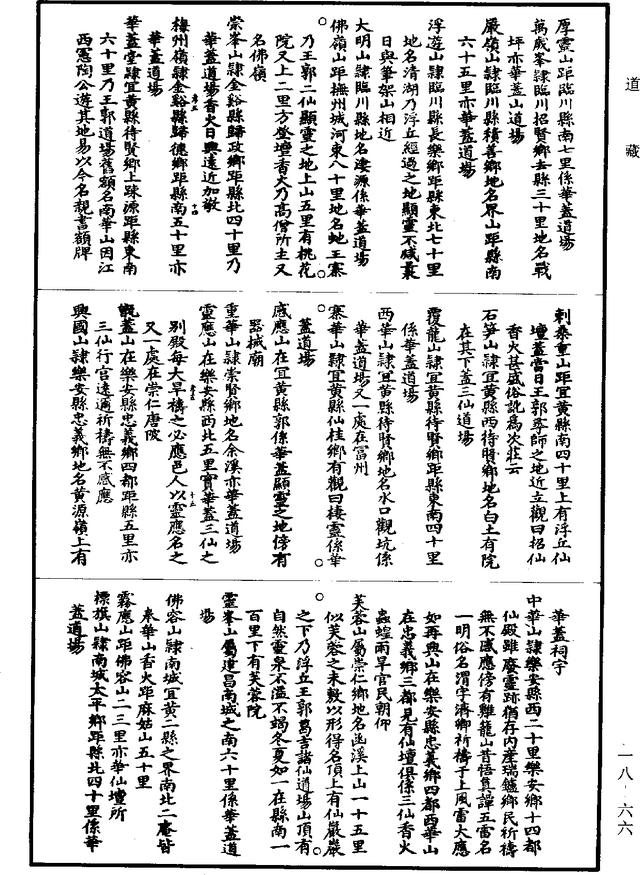 道藏
厚靈山距臨川縣南七里係華蓋道場
萬歲峯隸臨川招賢鄉去縣三十里地名戰
坪亦華蓋山道場
嚴嶺山隸臨川縣積善鄉地名界山距縣南
六十五里亦華蓋道場
浮遊山隸臨川縣長樂鄉距縣東北七十里
地名清湖乃浮丘經過之地顯靈不減最
日與筆架山相近
大明山隸臨川縣地名溇源係華蓋道場
佛嶺山距撫州城河東八十里地名虵王寨
乃王郭二仙顯靈之地上山五里有桃花
院又上二里方登壇香火乃高僧所主又
名佛嶺
崇峯山隸金谿縣歸政鄉距縣北四十里乃
華蓋道場香火日興遠近加敬
梅州嶺隸金谿縣歸德鄉距縣南五十里亦
華蓋道場
華蓋堂隸宜黃縣待賢鄉上疎源距縣東南
六十里乃王郭道場舊額名南華山因江
西憲陶公遊其地易以今名親書額牌
剌桑重山距宜黃縣南四十里上有浮丘仙
壇蓋當日王郭尋師之地近立觀曰招仙
香火甚盛俗訛爲次莊云
石笋山隸宜黃縣西待賢鄉地名白土有院
在其下蓋三仙道場
覆龍山隸宜黃縣待賢鄉距縣東南四十里
係華蓋道場
西華山隸宜黃縣待賢鄉地名水口觀坑係
華蓋道場又一處在富州
寨華山隸宜黃縣仙桂鄉有觀曰棲靈係華
蓋道場
感應山在宜黃縣郭係華蓋顯靈之地傍有
器械廟
重華山隸崇賢鄉地名余溪亦華蓋道場
靈應山在樂安縣西北五里實華蓋三仙之
別殿每大旱禱之必應邑人以靈應名之
又一處在崇仁唐陂
甑蓋山在樂安縣忠義鄉四都距縣五里亦
三仙行宮遠邇祈禱無不感應
興國山隸樂安縣忠義鄉地名黃源嶺上有
華蓋祠宇
中華山隸樂安縣西二十里樂安鄉十四都
仙殿雖廢靈跡猶存内產瑞鑪鄉民祈禱
無不感應傍有雞籠山昔悟真譚五雷名
一明俗名渭字濟卿祈禱于上風雷大應
如再興山在樂安縣忠義鄉四都西華山
在忠義鄉三都見有仙壇俱係三仙香火
蟲蝗雨旱官民朝仰
芙蓉山屬崇仁鄉地名函溪上山一十五里
似芙蓉之未敷以形得名頂上有仙巖巖
之下乃浮丘王郭葛吉諸仙道場山頂有
自然靈泉不溢不竭冬夏如一在縣南一
百里下有芙蓉院
靈峯山屬建昌南城之南六十里係華蓋道
場
佛容山隸南城宜黃二縣之界南北二菴皆
奉華山香火距麻姑山五十里
霧應山距佛容山二三里亦華仙壇所
標旗山隸南城太平鄉距縣北四十里係華
蓋道場
一八·六六